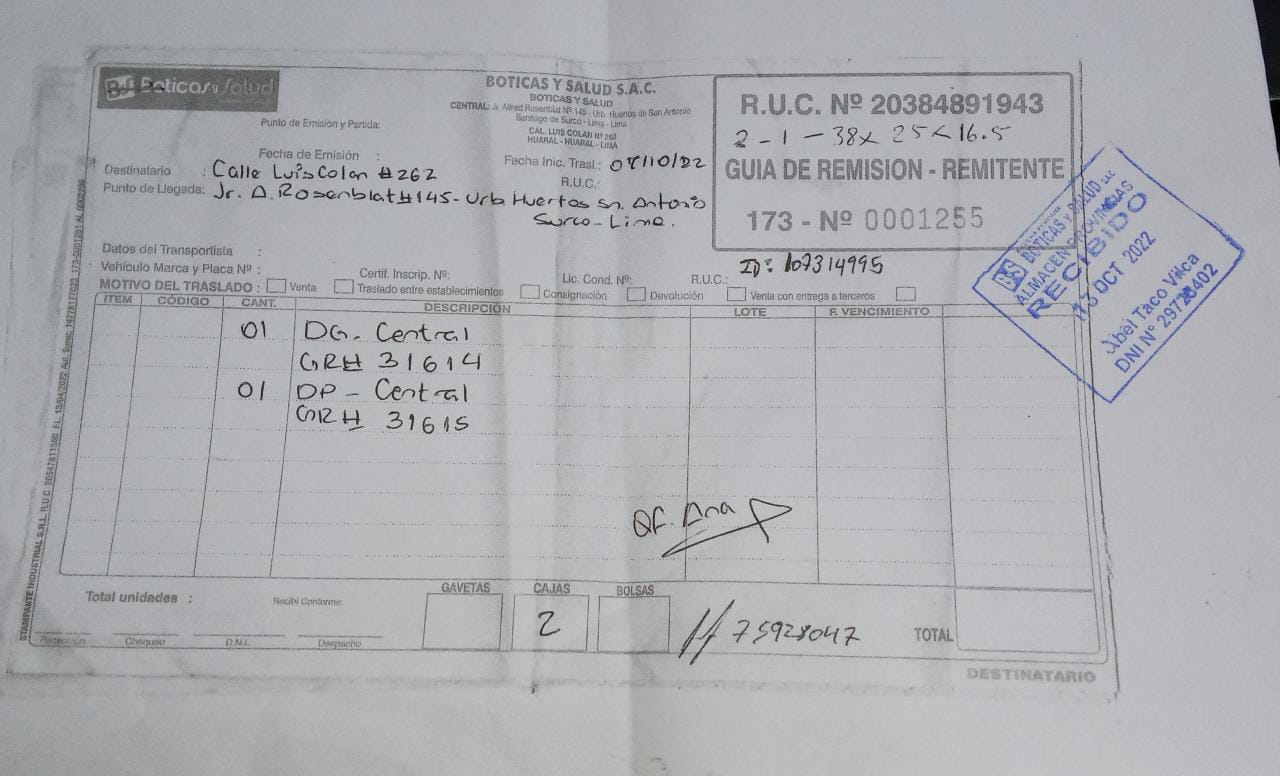 Boticas y Salud
BOTICAS Y SALUD S.A.C.
BOTICAS Y SALUD
CENTRAL: Jr. Alfred Rosenblat Nº 145 - Urb. Huertos de San Antonio
Santiago de Surco - Lima - Lima
CAL. LUIS COLAN Nº 262
HUARAL - HUARAL - LIMA
R.U.C. Nº 20384891943
2-1-38x 25x16.5
GUIA DE REMISION - REMITENTE
173 - Nº 0001255
Punto de Emisión y Partida:
Fecha de Emisión :
Fecha Inic. Trasl.: /10/22
Destinatario : Calle Luis Colan #262
R.U.C.:
Punto de Llegada: Jr. A. Rosenblat #145 - Urb Huertos Sn. Antonio
Surco - Lima.
Datos del Transportista :
ID: 107314995
Vehículo Marca y Placa Nº : Certif. Inscrip. Nº: Lic. Cond. Nº: R.U.C.:
MOTIVO DEL TRASLADO : Venta Traslado entre establecimientos Consignación Devolución Venta con entrega a terceros
ITEM CÓDIGO CANT. DESCRIPCIÓN LOTE F. VENCIMIENTO
01 DG. Central
GRH 31614
01 DP - Central
GRH 31615
QF. Ana
GAVETAS CAJAS BOLSAS
Total unidades : Recibí Conforme:
2
75928047
TOTAL
Recepción Chequeo D.N.I. Despacho
DESTINATARIO
BS BOTICAS Y SALUD SAC
ALMACEN PROVINCIAS
RECIBIDO
13 OCT 2022
Abel Taco Vilca
DNI N°
STAMPARTE INDUSTRIAL S.R.L. R.U.C. 20547811580 F.I. 13/04/2022 Aut. Sunat: